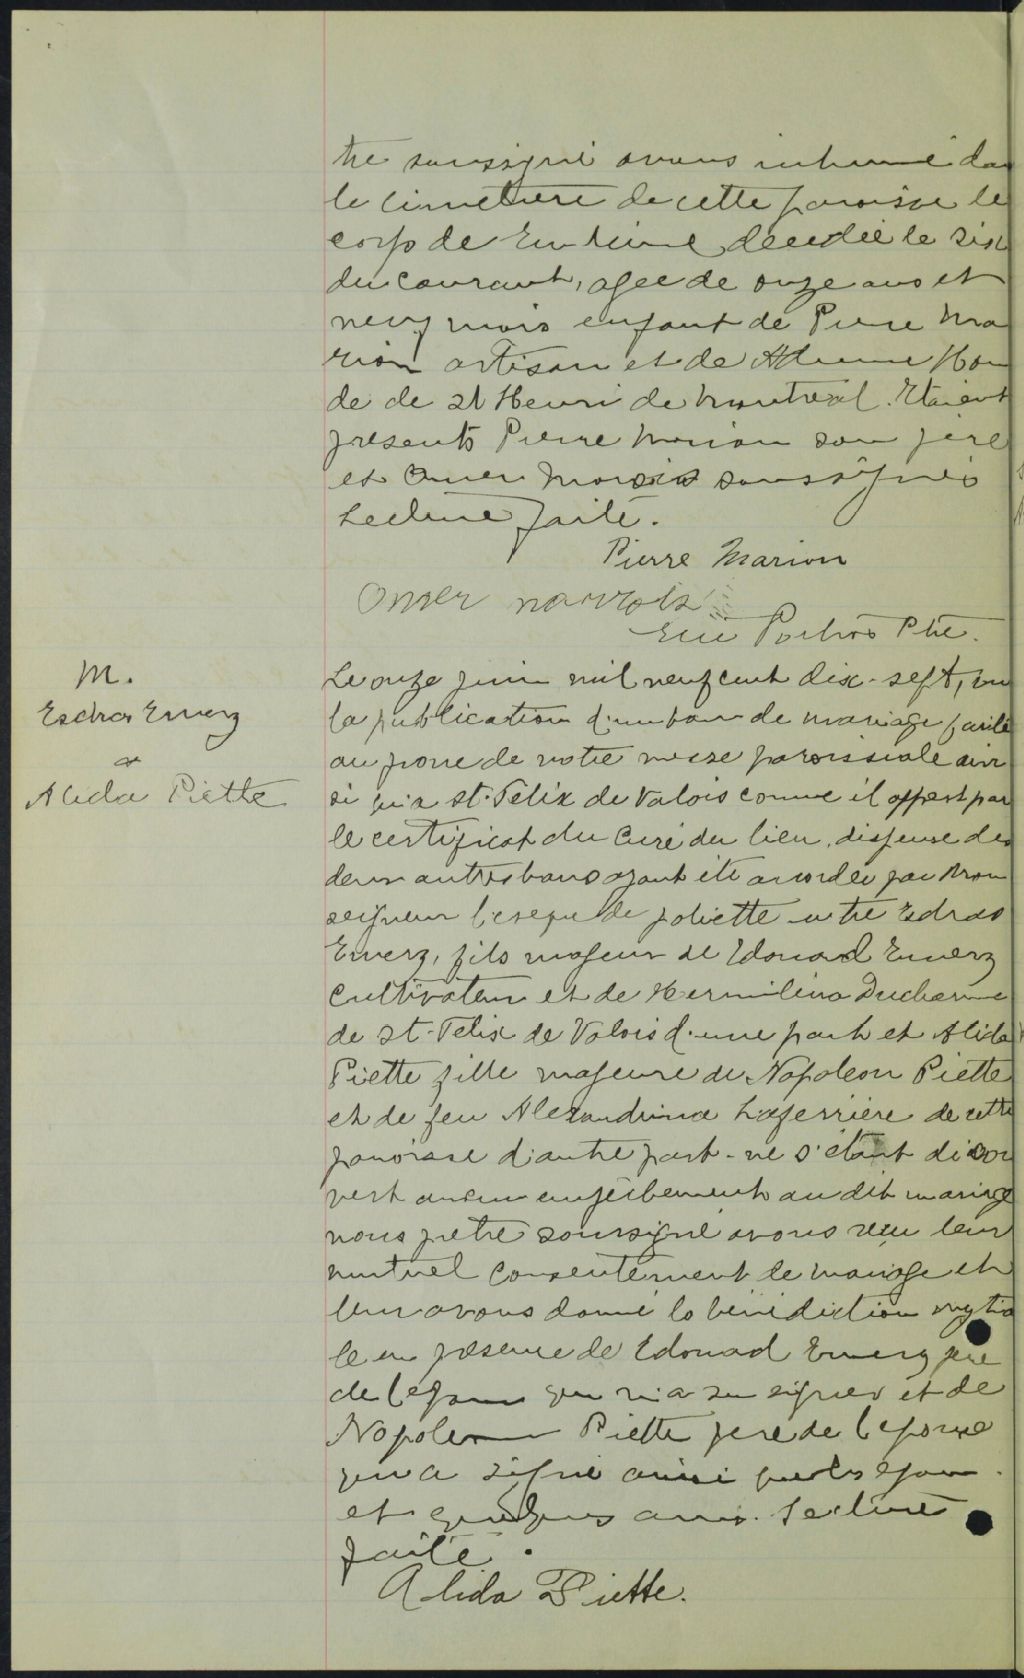 tre soussigné avons inhumé da
le cimetiere de cette paroisse le
corps de decedée le six
du courant, agee de onze ans et
neuf mois enfant de Pierre Ma
rion artisan et de Hou
de de St Henri de Montreal. Etaient
presents Pierre Marion son père
et Omer soussignés
Lecture faite.
Pierre Marion
Omer
Ptre.
M.
Esdras Emery
&
Alida Piette
Le onze juin mil neuf cent dix-sept, vu
la publication d'un ban de mariage faite
au prone de notre messe paroissiale ain
si qu'a St-Felix de Valois comme il appert par
le certificat du Curé du lieu, dispense des
deux autres bans ayant été accordée par Mon
seigneur l'eveque de Joliette entre Edras
Emery, fils majeur de Edouard Emery
Cultivateur et de Hermilina Ducharme
de St-Felix de Valois d'une part et Alida
Piette fille majeure de Napoleon Piette
et de feu Alexandrina Laferrière de cette
paroisse d'autre part - ne s'étant décou
vert aucun empêchement au dit mariage
nous pretre soussigné avons reçu leur
mutuel consentement de mariage et
leur avons donné la bénédiction nuptia
le en présence de Edouad Emery père
de l'epoux qui n'a su signer et de
Napoleon Piette pere de l'epouse
qui a signé ainsi que les epoux
et quelques amis. Lecture
faite.
Alida Piette.